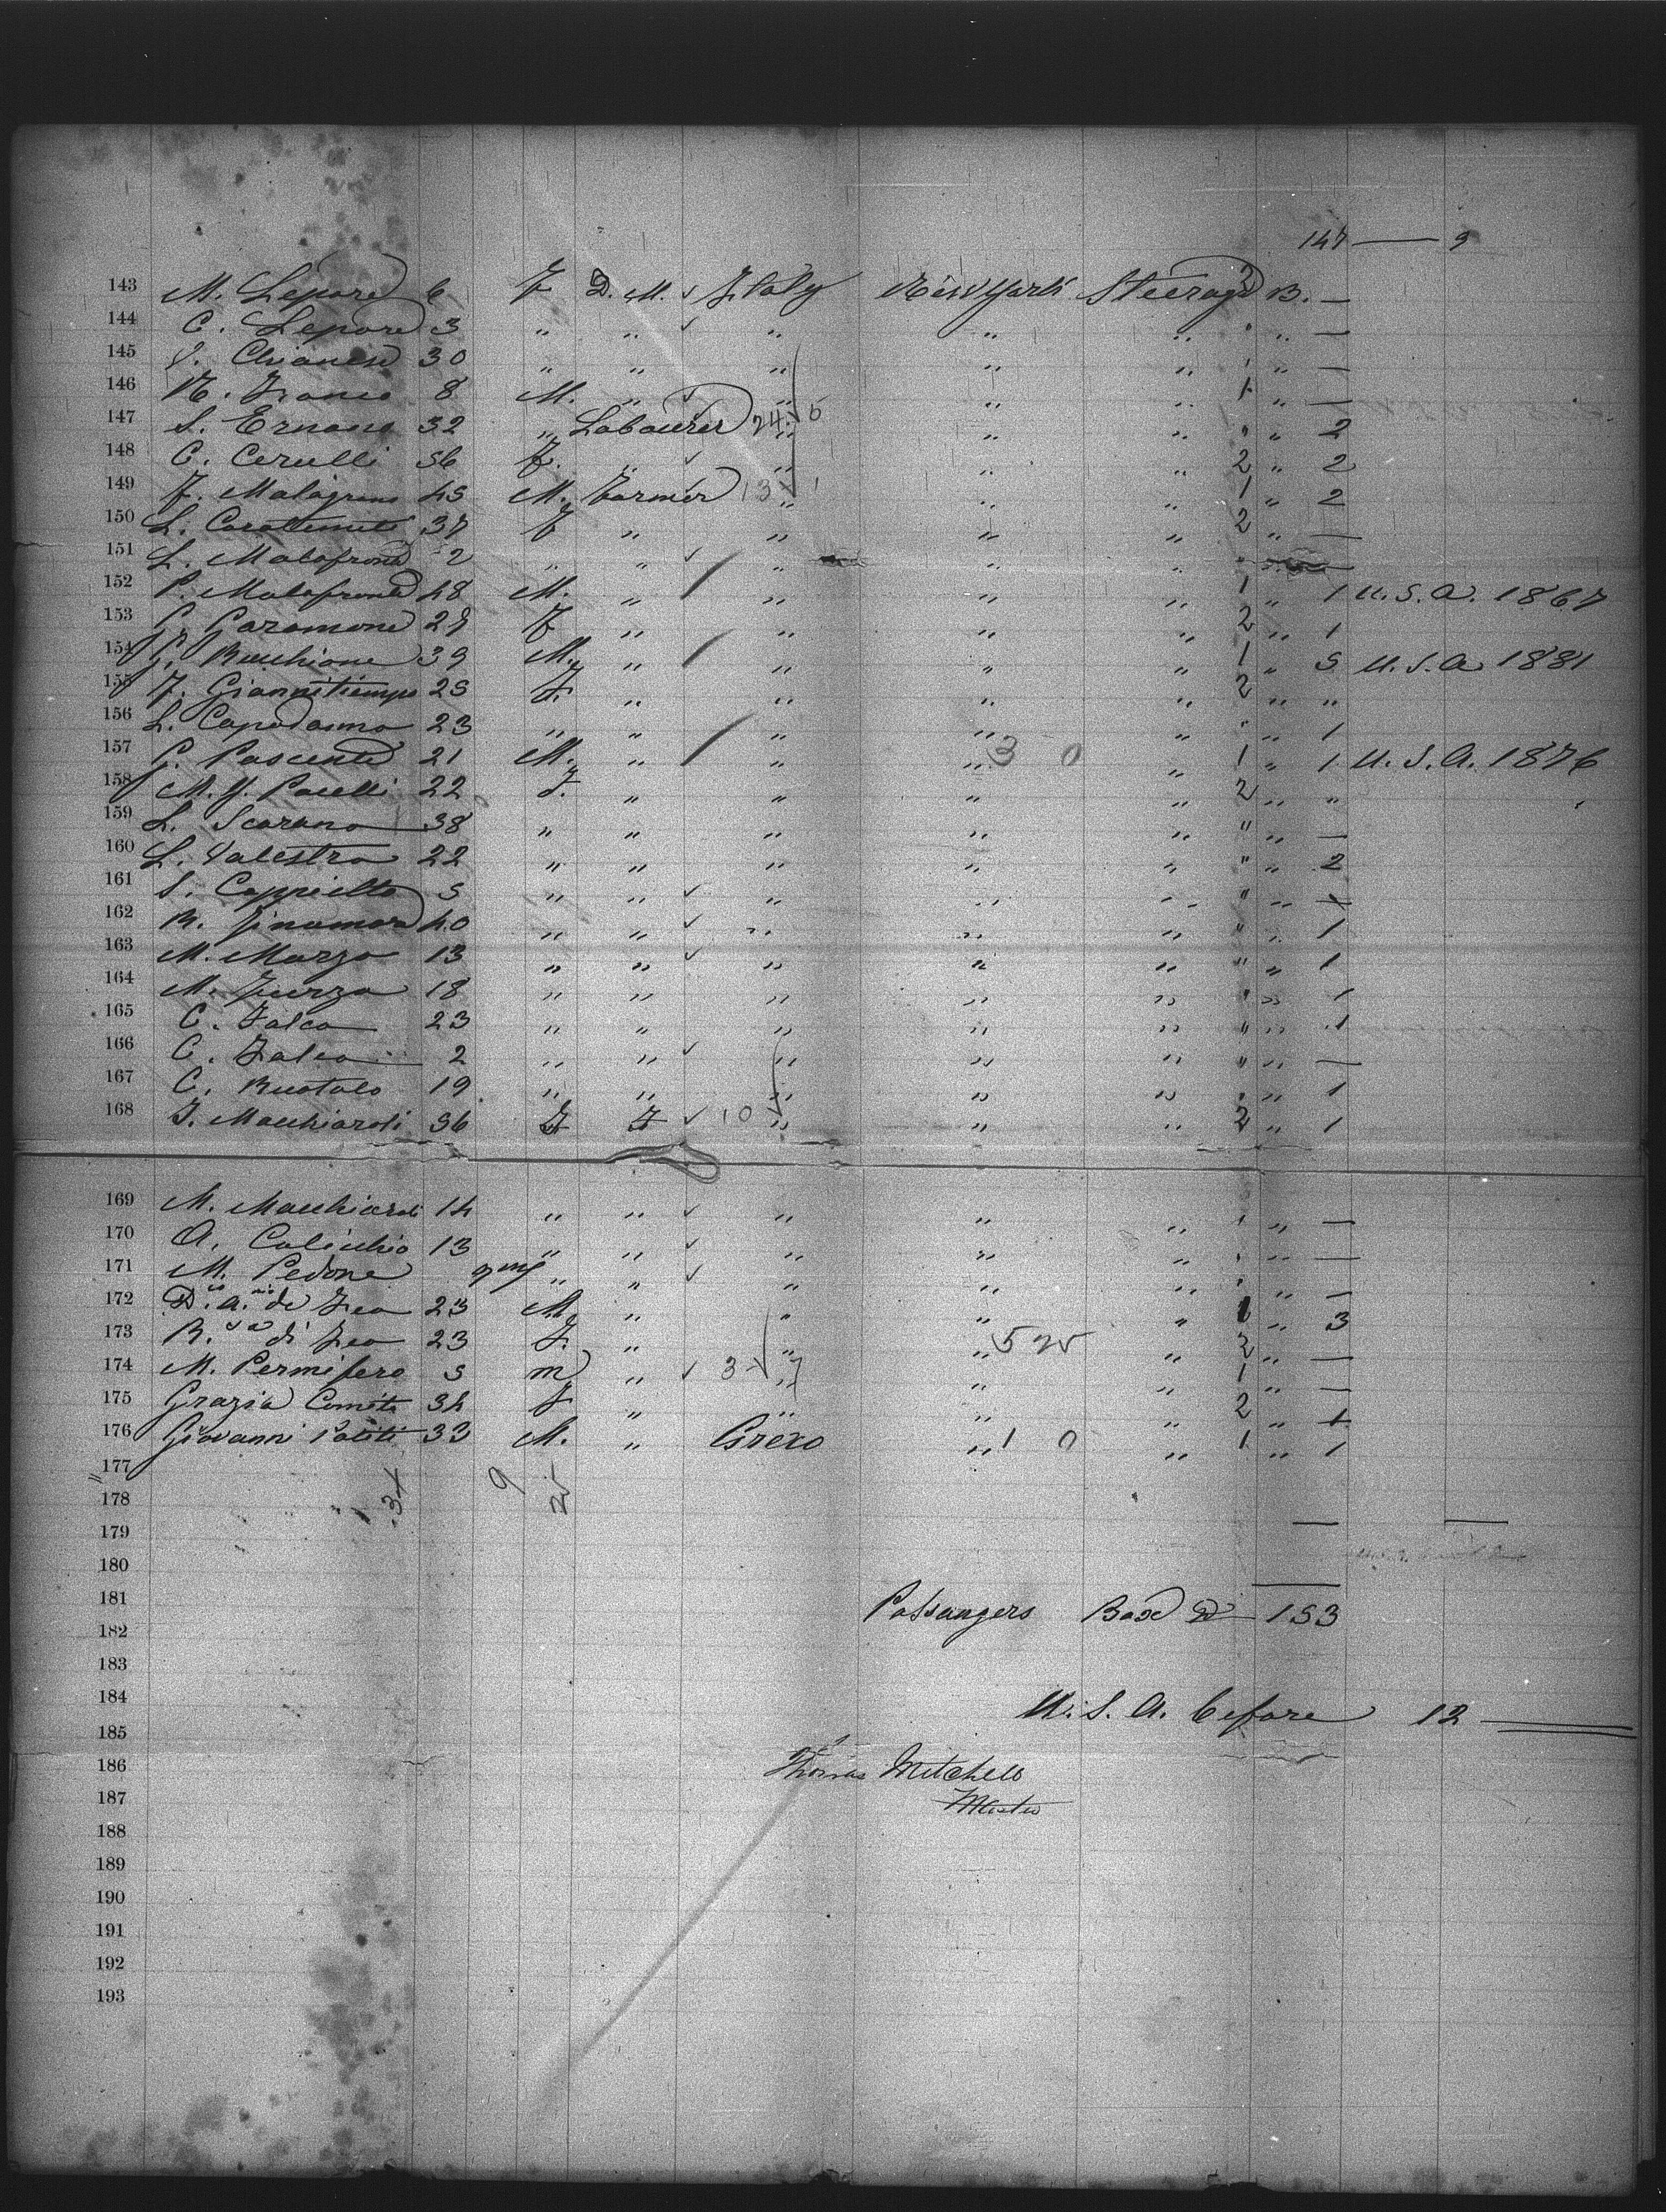 147 — 9
143 M. Lepore 6 F D. M. ✓ Italy New York Steerage 2 B. —
144 C. Lepore 3 " " ✓ " " " " " —
145 Chianese 30 " " " " " " " —
146 Franco 8 M. " ✓ " " " 1 " —
147 S. Ernano 32 " Labourer 24 " 5 " " " " 2
148 C. Cerulli 56 F. " ✓ " " " 2 " 2
149 F. Malagrino 45 M. Farmer 13 " 1 " " 1 " 2
150 L. 37 F " " " " 2 " —
151 L. Malafronte 2 " " ✓ " " " " " —
152 P. Malafronte 48 M. " / " " " 1 " 1 U.S.A. 1867
153 Garamone 29 F " " " " 2 " 1
154 Bucchione 39 M. " / " " " 1 " 5 U.S.A 1881
155 F. Giannitiempo 25 F. " " " " 2 " "
156 L. Capodanno 23 " " " " " " " 1
157 Pascente 21 M. " / " " 3 0 " 1 " 1 U.S.A. 1876
158 M. G. Pacelli 22 F. " " " " 2 " "
159 L. Scarano 38 " " " " " " " —
160 L. Valestra 22 " " " " " " " 2
161 S. Cappiello 5 " " ✓ " " " " "
162 R. 40 " " ✓ " " " " " 1
163 M. Marzo 13 " " ✓ " " " " " 1
164 M. 18 " " " " " " " 1
165 C. Falco 23 " " " " " " " 1
166 C. Falco 2 " " ✓ " " " " " —
167 C. Ruotolo 19 " " " " " " " 1
168 Macchiaroli 36 F F ✓ 10 " " " 2 " 1
169 M. Macchiaroli 14 " " ✓ " " " " " —
170 A. Calicchio 13 " " ✓ " " " " " —
171 M. Pedone " " ✓ " " " " " —
172 D.co A.nio de Feo 23 M. " " " " 1 " 3
173 di Feo 23 F. " " " 525 " 2 " —
174 M. Permifero 5 m " ✓ 3 " 7 " " 1 " —
175 Grazia Comite 34 F " " " " 2 " 1
176 Giovanni Politi 33 M. " Greco " 1 0 " 1 " 1
177
178 34 9 25
179
180
181 Passangers Board 153
182
183
184 U. S. A. before 12
185
186 Thomas Mitchell
187 Master
188
189
190
191
192
193